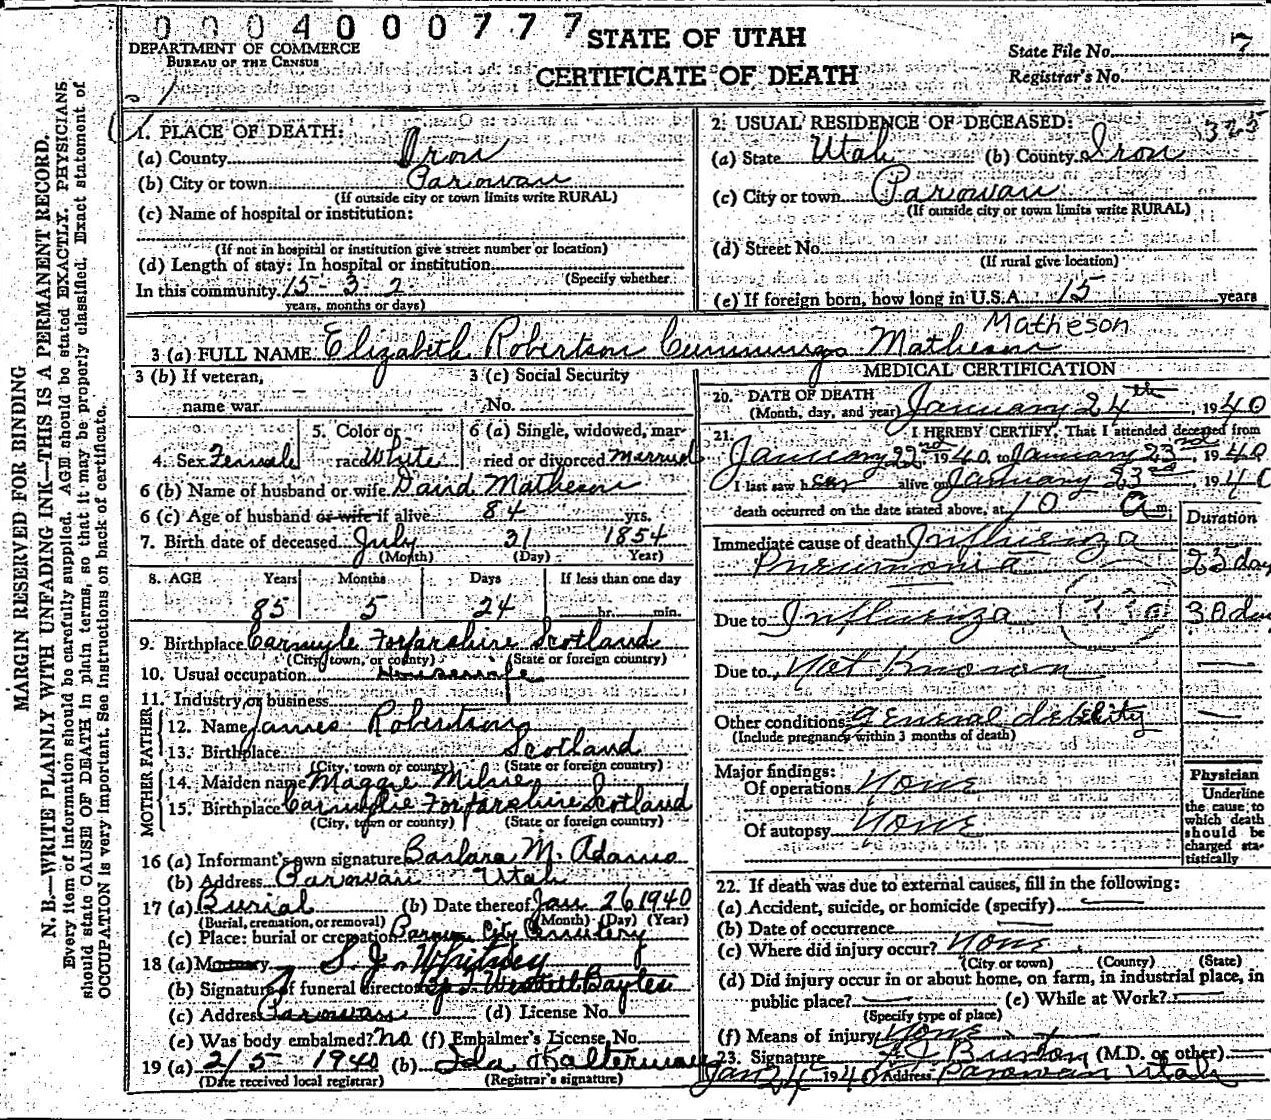 0004000777
STATE OF UTAH
CERTIFICATE OF DEATH
DEPARTMENT OF COMMERCE
BUREAU OF THE CENSUS
State File No. 7
Registrar's No.
MARGIN RESERVED FOR BINDING
N. B.—WRITE PLAINLY WITH UNFADING INK—THIS IS A PERMANENT RECORD.
Every item of information should be carefully supplied. AGE should be stated EXACTLY. PHYSICIANS
should state CAUSE OF DEATH in plain terms, so that it may be properly classified. Exact statement of
OCCUPATION is very important. See instructions on back of certificate.
1. PLACE OF DEATH:
(a) County Iron
(b) City or town Parowan
(If outside city or town limits write RURAL)
(c) Name of hospital or institution:
(If not in hospital or institution give street number or location)
(d) Length of stay: In hospital or institution
(Specify whether
In this community 15-3-2
years, months or days)
2. USUAL RESIDENCE OF DECEASED: 325
(a) State Utah (b) County Iron
(c) City or town Parowan
(If outside city or town limits write RURAL)
(d) Street No.
(If rural give location)
(e) If foreign born, how long in U.S.A. 15 years
Matheson
3 (a) FULL NAME Elizabeth Robertson Cummings Matheson
3 (b) If veteran, 3 (c) Social Security
name war No.
4. Sex Female 5. Color or race White 6 (a) Single, widowed, married or divorced Married
6 (b) Name of husband or wife David Matheson
6 (c) Age of husband or wife if alive 84 yrs.
7. Birth date of deceased July 31 1854
(Month) (Day) (Year)
8. AGE Years Months Days If less than one day
85 5 24 hr. min.
9. Birthplace Carmylie Forfarshire Scotland
(City, town, or county) (State or foreign country)
10. Usual occupation Housewife
11. Industry or business
FATHER
12. Name James Robertson
13. Birthplace Scotland
(City, town or county) (State or foreign country)
MOTHER
14. Maiden name Maggie Milne
15. Birthplace Carmylie Forfarshire Scotland
(City, town or county) (State or foreign country)
16 (a) Informant's own signature Barbara M. Adams
(b) Address Parowan Utah
17 (a) Burial (b) Date thereof Jan 26 1940
(Burial, cremation, or removal) (Month) (Day) (Year)
(c) Place: burial or cremation Parowan City Cemetery
18 (a) Mortuary S. J. Whitney
(b) Signature of funeral director Bayles
(c) Address Parowan (d) License No.
(e) Was body embalmed? no (f) Embalmer's License No.
19 (a) 2/5 1940 (b) Ida Halterman
(Date received local registrar) (Registrar's signature)
MEDICAL CERTIFICATION
20. DATE OF DEATH
(Month, day, and year) January 24th, 1940
21. I HEREBY CERTIFY, That I attended deceased from
January 22nd 1940, to January 23rd, 1940
I last saw her alive on January 23rd, 1940
death occurred on the date stated above, at 10 A m.
Duration
Immediate cause of death Influenza
Pneumonia 23 day
Due to Influenza 30 day
Due to Not Known
Other conditions general debility
(Include pregnancy within 3 months of death)
Major findings:
Of operations None
Of autopsy None
Physician
Underline
the cause to
which death
should be
charged sta-
tistically
22. If death was due to external causes, fill in the following:
(a) Accident, suicide, or homicide (specify)
(b) Date of occurrence
(c) Where did injury occur? None
(City or town) (County) (State)
(d) Did injury occur in or about home, on farm, in industrial place, in
public place? (e) While at Work?
(Specify type of place)
(f) Means of injury None
23. Signature Burton (M.D. or other)
Jan 24 1940 Address Parowan Utah